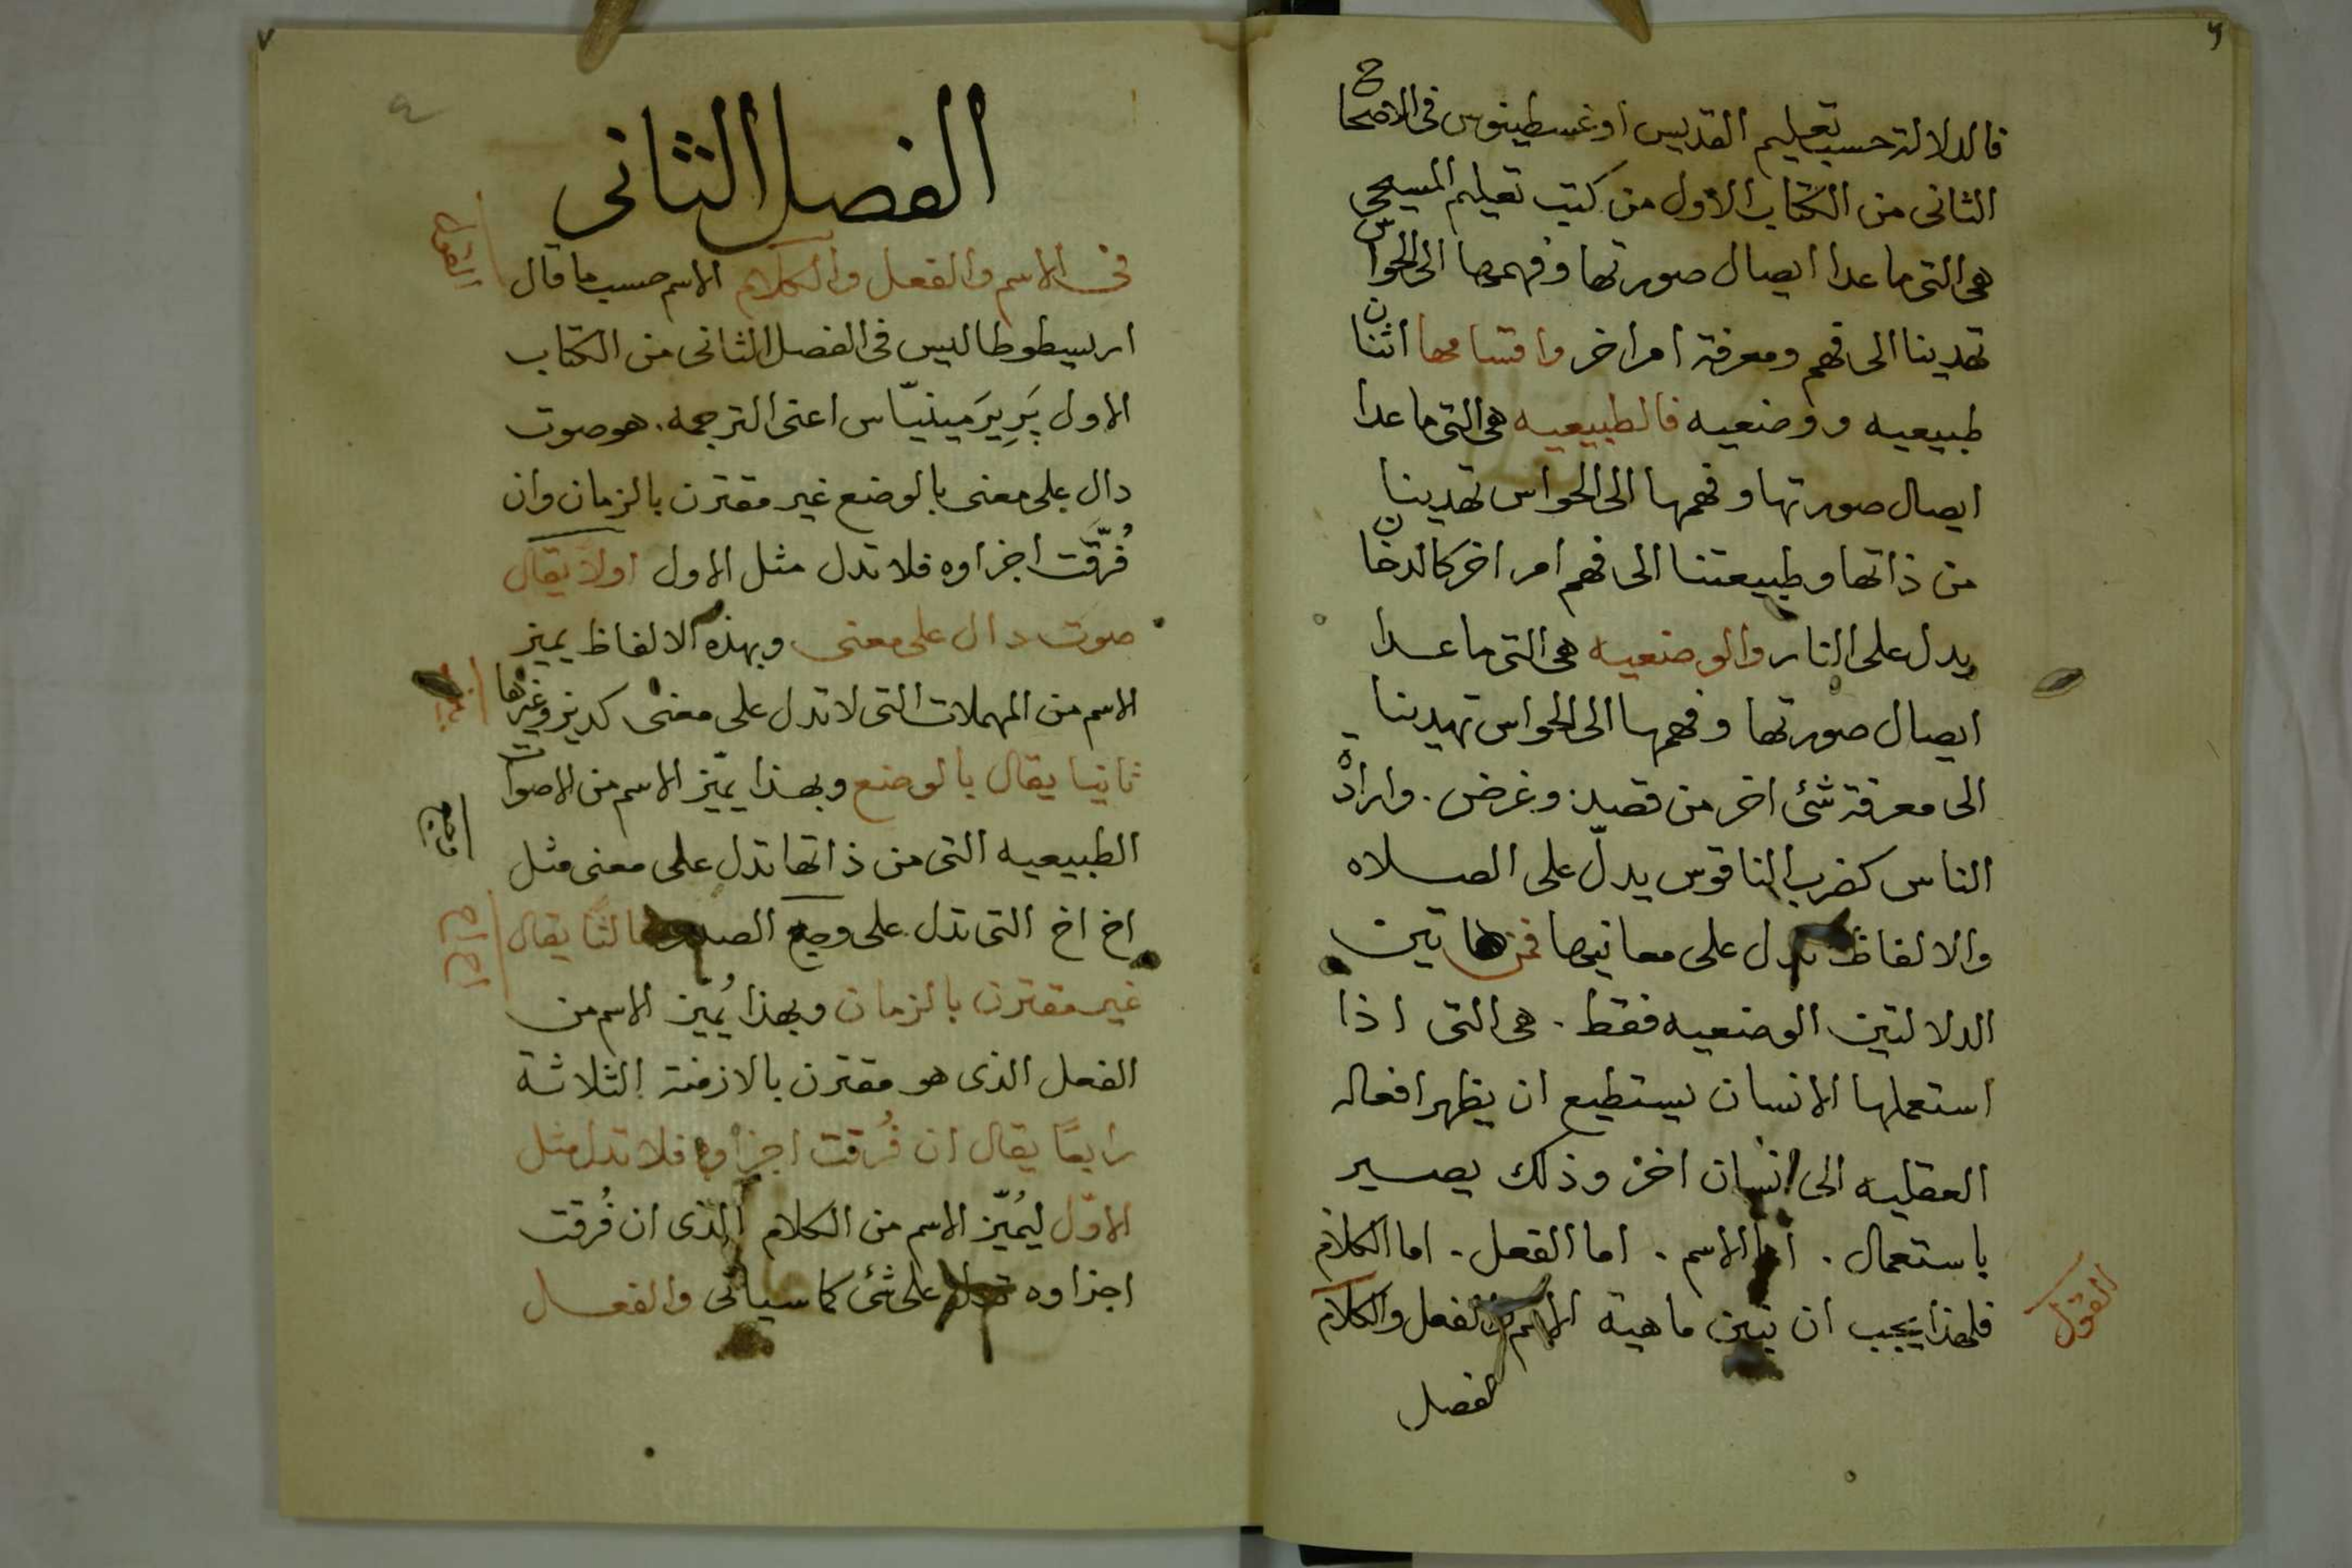 فالدلالة حسب تعليم القديس اوغسطينوس فى الاصحاح
الثانى من الكتاب الاول من كتب تعليم المسيحى
هى التى ما عدا ايصال صورتها وفهمها الى الحواس
تهدينا الى فهم ومعرفة امر اخر واقسامها اثنان
طبيعيه ووضعيه فالطبيعيه هى التى ما عدا
ايصال صورتها وفهمها الى الحواس تهدينا
من ذاتها وطبيعتنا الى فهم امر اخر كالدخان
يدل على النار والوضعيه هى التى ما عدا
ايصال صورتها وفهمها الى الحواس تهدينا
الى معرفة شئ اخر من قصد وغرض . وارادة
الناس كضرب الناقوس يدلّ على الصلاه
والالفاظ تدل على معانيها فمن هاتين
الدلالتين الوضعيه فقط . هى التى اذا
استعملها الانسان يستطيع ان يظهر افعاله
العقليه الى انسان اخر وذلك يصير
باستعمال . اما الاسم . اما الفعل . اما الكلام
فلهذا يجب ان نبين ماهية الاسم والفعل والكلام
القول
لفصل
٧
الفصل الثانى
فى الاسم والفعل والكلام الاسم حسب ما قال
القول
اريسطوطاليس فى الفصل الثانى من الكتاب
الاول پَرِيرَمينيّاس اعنى الترجمه . هو صوت
دال على معنى بالوضع غير مقترن بالزمان وان
فُرّقَت اجزاوه فلا تدل مثل الاول اولاً يقال
صوت دال على معنى وبهذه الالفاظ يميز
الاسم من المهملات التى لا تدل على معنى كديز وغيرها
ثانيا يقال بالوضع وبهذا يميّز الاسم من الاصوات
الطبيعيه التى من ذاتها تدل على معنى مثل
اخ اخ التى تدل على وجع الصدر ثالثًا يقال
اح اح
غير مقترن بالزمان وبهذا يُميز الاسم من
الفعل الذى هو مقترن بالازمنة الثلاثة
رابعًا يقال ان فُرقت اجزاوه فلا تدل مثل
الاوّل ليُميّز الاسم من الكلام الذى ان فُرقت
اجزاوه تدل على شئ كما سياتى والفعل